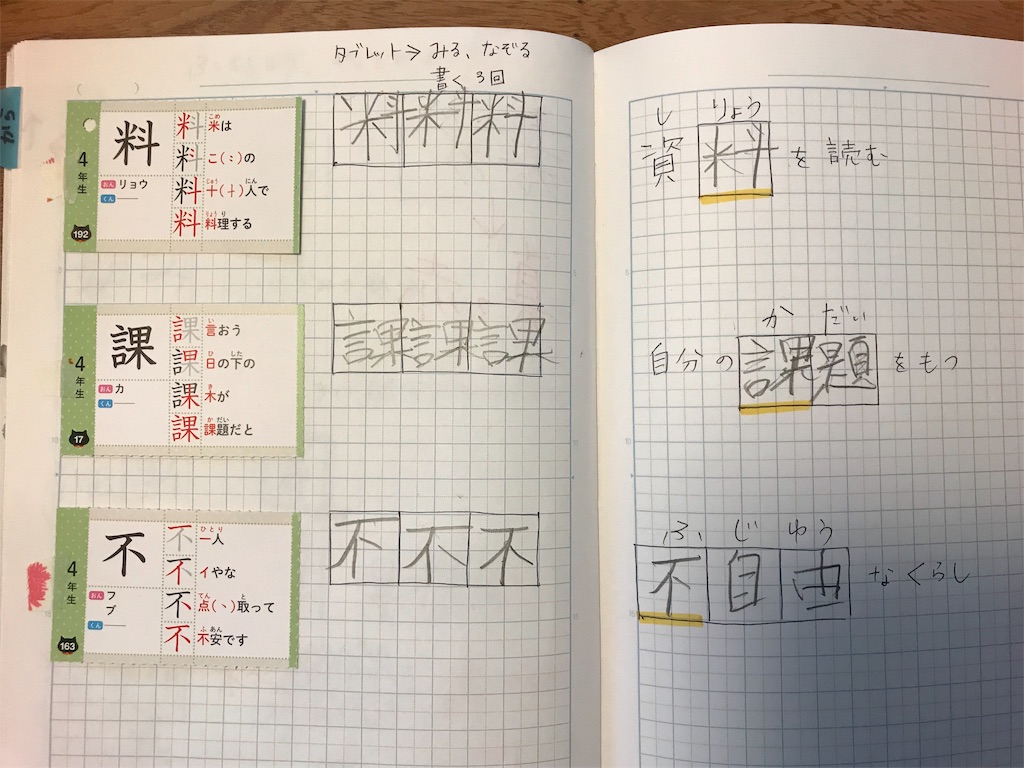 タブレット⇒みる、なぞる
書く3回
から
4年生
192
料
おん リョウ
くん ―
料 米は
料 こ(:)の
料 十(十)人で
料 料理する
こめ
じゅう にん
りょう り
料 料 料
4年生
17
課
おん カ
くん ―
課 言おう
課 日の下の
課 木が
課 課題だと
い
ひ した
き
か だい
課 課 課
4年生
163
不
おん フ ブ
くん ―
不 一人
不 イやな
不 点(丶)取って
不 不安です
ひとり
てん と
ふ あん
不 不 不
し りょう
資料を読む
か だい
自分の課題をもつ
ふ じ ゆう
不自由なくらし